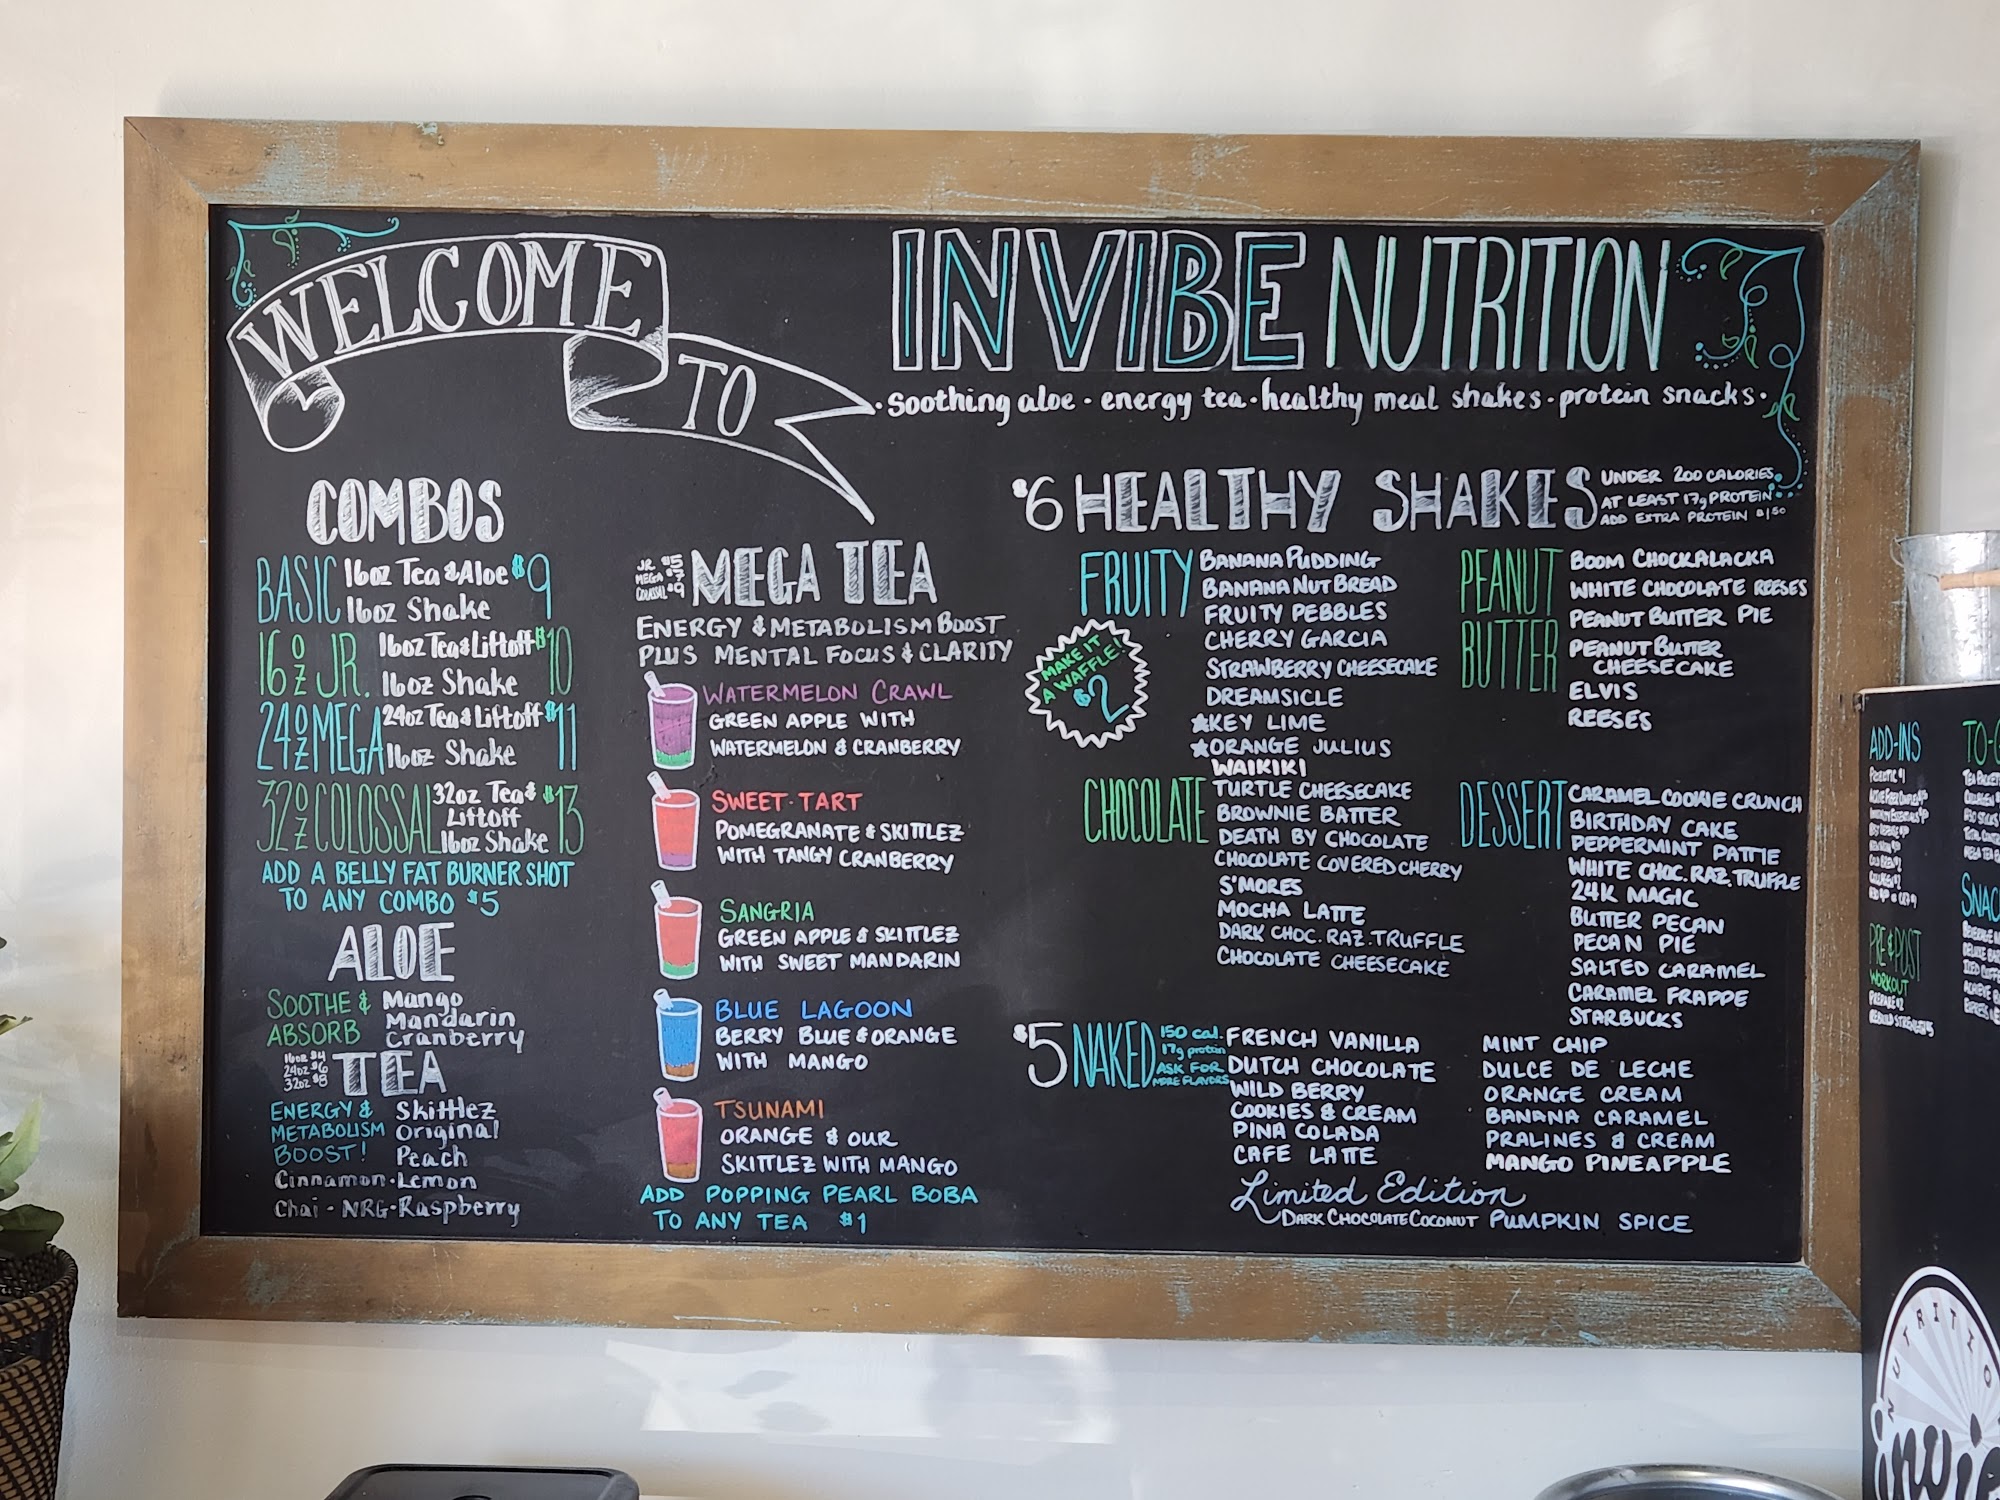 WELCOME
TO
INVIBE NUTRITION
• Soothing aloe • energy tea • healthy meal shakes • protein snacks •
COMBOS
BASIC 16oz Tea & Aloe $9
16oz Shake
16oz JR. 16oz Tea & Liftoff $10
16oz Shake
24oz MEGA 24oz Tea & Liftoff $11
16oz Shake
32oz COLOSSAL 32oz Tea & $13
Liftoff
16oz Shake
ADD A BELLY FAT BURNER SHOT
TO ANY COMBO $5
ALOE
SOOTHE & ABSORB
Mango
Mandarin
Cranberry
16oz $4
24oz $6
32oz $8
TEA
ENERGY &
METABOLISM
BOOST!
Skittlez
Original
Peach
Cinnamon • Lemon
Chai • NRG • Raspberry
JR. $5
MEGA $7
COLOSSAL $9
MEGA TEA
ENERGY & METABOLISM BOOST
PLUS MENTAL FOCUS & CLARITY
WATERMELON CRAWL
GREEN APPLE WITH
WATERMELON & CRANBERRY
SWEET-TART
POMEGRANATE & SKITTLEZ
WITH TANGY CRANBERRY
SANGRIA
GREEN APPLE & SKITTLEZ
WITH SWEET MANDARIN
BLUE LAGOON
BERRY BLUE & ORANGE
WITH MANGO
TSUNAMI
ORANGE & OUR
SKITTLEZ WITH MANGO
ADD POPPING PEARL BOBA
TO ANY TEA $1
$6 HEALTHY SHAKES
UNDER 200 CALORIES
AT LEAST 17g PROTEIN
ADD EXTRA PROTEIN $1.50
FRUITY
BANANA PUDDING
BANANA NUT BREAD
FRUITY PEBBLES
CHERRY GARCIA
STRAWBERRY CHEESECAKE
DREAMSICLE
★KEY LIME
★ORANGE JULIUS
WAIKIKI
MAKE IT
A WAFFLE!
$2
CHOCOLATE
TURTLE CHEESECAKE
BROWNIE BATTER
DEATH BY CHOCOLATE
CHOCOLATE COVERED CHERRY
S'MORES
MOCHA LATTE
DARK CHOC. RAZ. TRUFFLE
CHOCOLATE CHEESECAKE
PEANUT
BUTTER
BOOM CHOCKALACKA
WHITE CHOCOLATE REESES
PEANUT BUTTER PIE
PEANUT BUTTER
CHEESECAKE
ELVIS
REESES
DESSERT
CARAMEL COOKIE CRUNCH
BIRTHDAY CAKE
PEPPERMINT PATTIE
WHITE CHOC. RAZ. TRUFFLE
24K MAGIC
BUTTER PECAN
PECAN PIE
SALTED CARAMEL
CARAMEL FRAPPE
STARBUCKS
$5 NAKED
150 cal.
17g protein
ASK FOR
MORE FLAVORS
FRENCH VANILLA
DUTCH CHOCOLATE
WILD BERRY
COOKIES & CREAM
PINA COLADA
CAFE LATTE
MINT CHIP
DULCE DE LECHE
ORANGE CREAM
BANANA CARAMEL
PRALINES & CREAM
MANGO PINEAPPLE
Limited Edition
DARK CHOCOLATE COCONUT PUMPKIN SPICE
ADD-INS
PRE & POST
WORKOUT
PREPARE $2
NUTRITIO